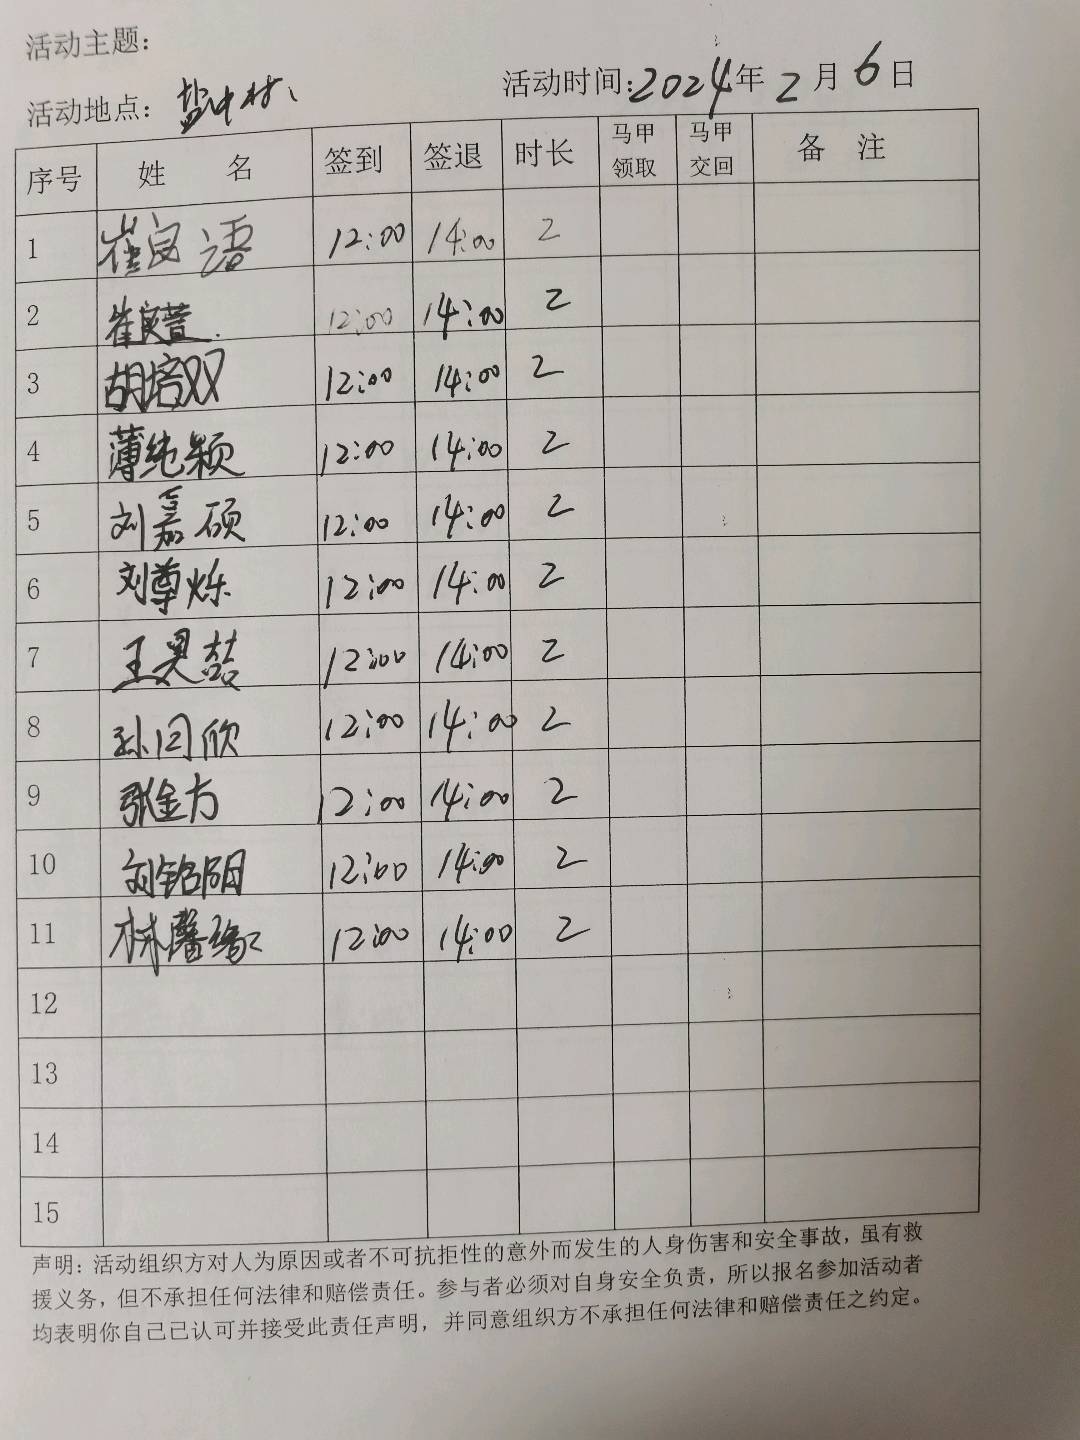 活动主题：
活动地点：盐中村 活动时间：2024年2月6日
序号 姓 名 签到 签退 时长 马甲领取 马甲交回 备 注
1 崔良语 12:00 14:00 2
2 崔良萱 12:00 14:00 2
3 胡培双 12:00 14:00 2
4 薄纯颖 12:00 14:00 2
5 刘嘉硕 12:00 14:00 2
6 刘尊烁 12:00 14:00 2
7 王昊喆 12:00 14:00 2
8 孙同欣 12:00 14:00 2
9 张金方 12:00 14:00 2
10 刘铭阳 12:00 14:00 2
11 林馨缘 12:00 14:00 2
12
13
14
15
声明：活动组织方对人为原因或者不可抗拒性的意外而发生的人身伤害和安全事故，虽有救
援义务，但不承担任何法律和赔偿责任。参与者必须对自身安全负责，所以报名参加活动者
均表明你自己已认可并接受此责任声明，并同意组织方不承担任何法律和赔偿责任之约定。